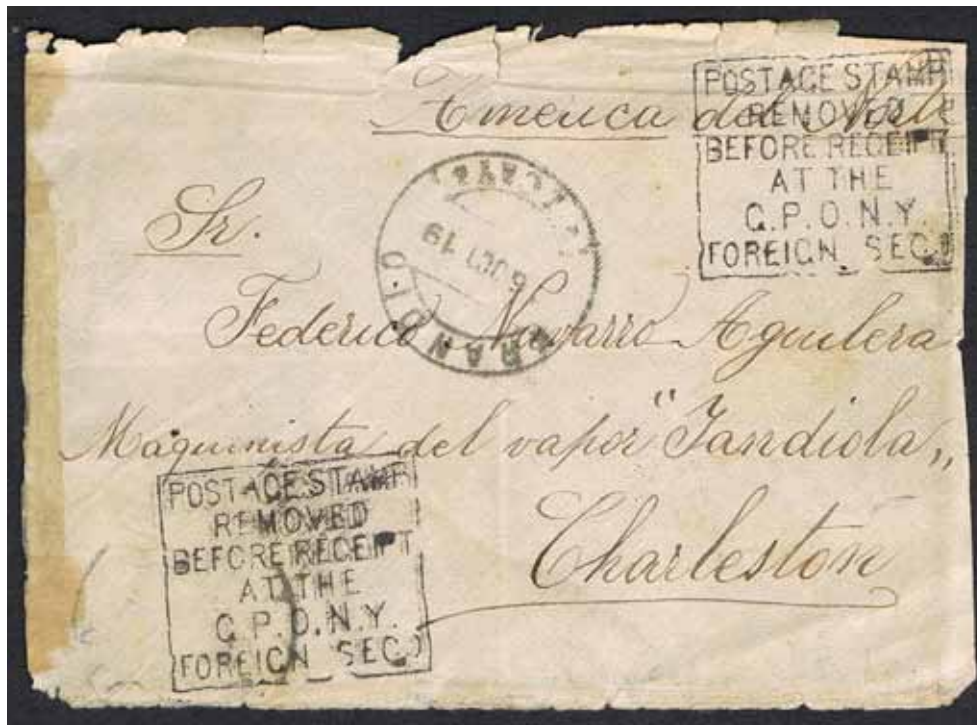 America del Norte
POSTAGE STAMP
REMOVED
BEFORE RECEIPT
AT THE
G.P.O.N.Y.
FOREIGN SEC.
Sr.
6 OCT 19
Federico Navarro Aguilera
Maquinista del vapor "Jandiola"
Charleston
POSTAGE STAMP
REMOVED
BEFORE RECEIPT
AT THE
G.P.O.N.Y.
FOREIGN SEC.